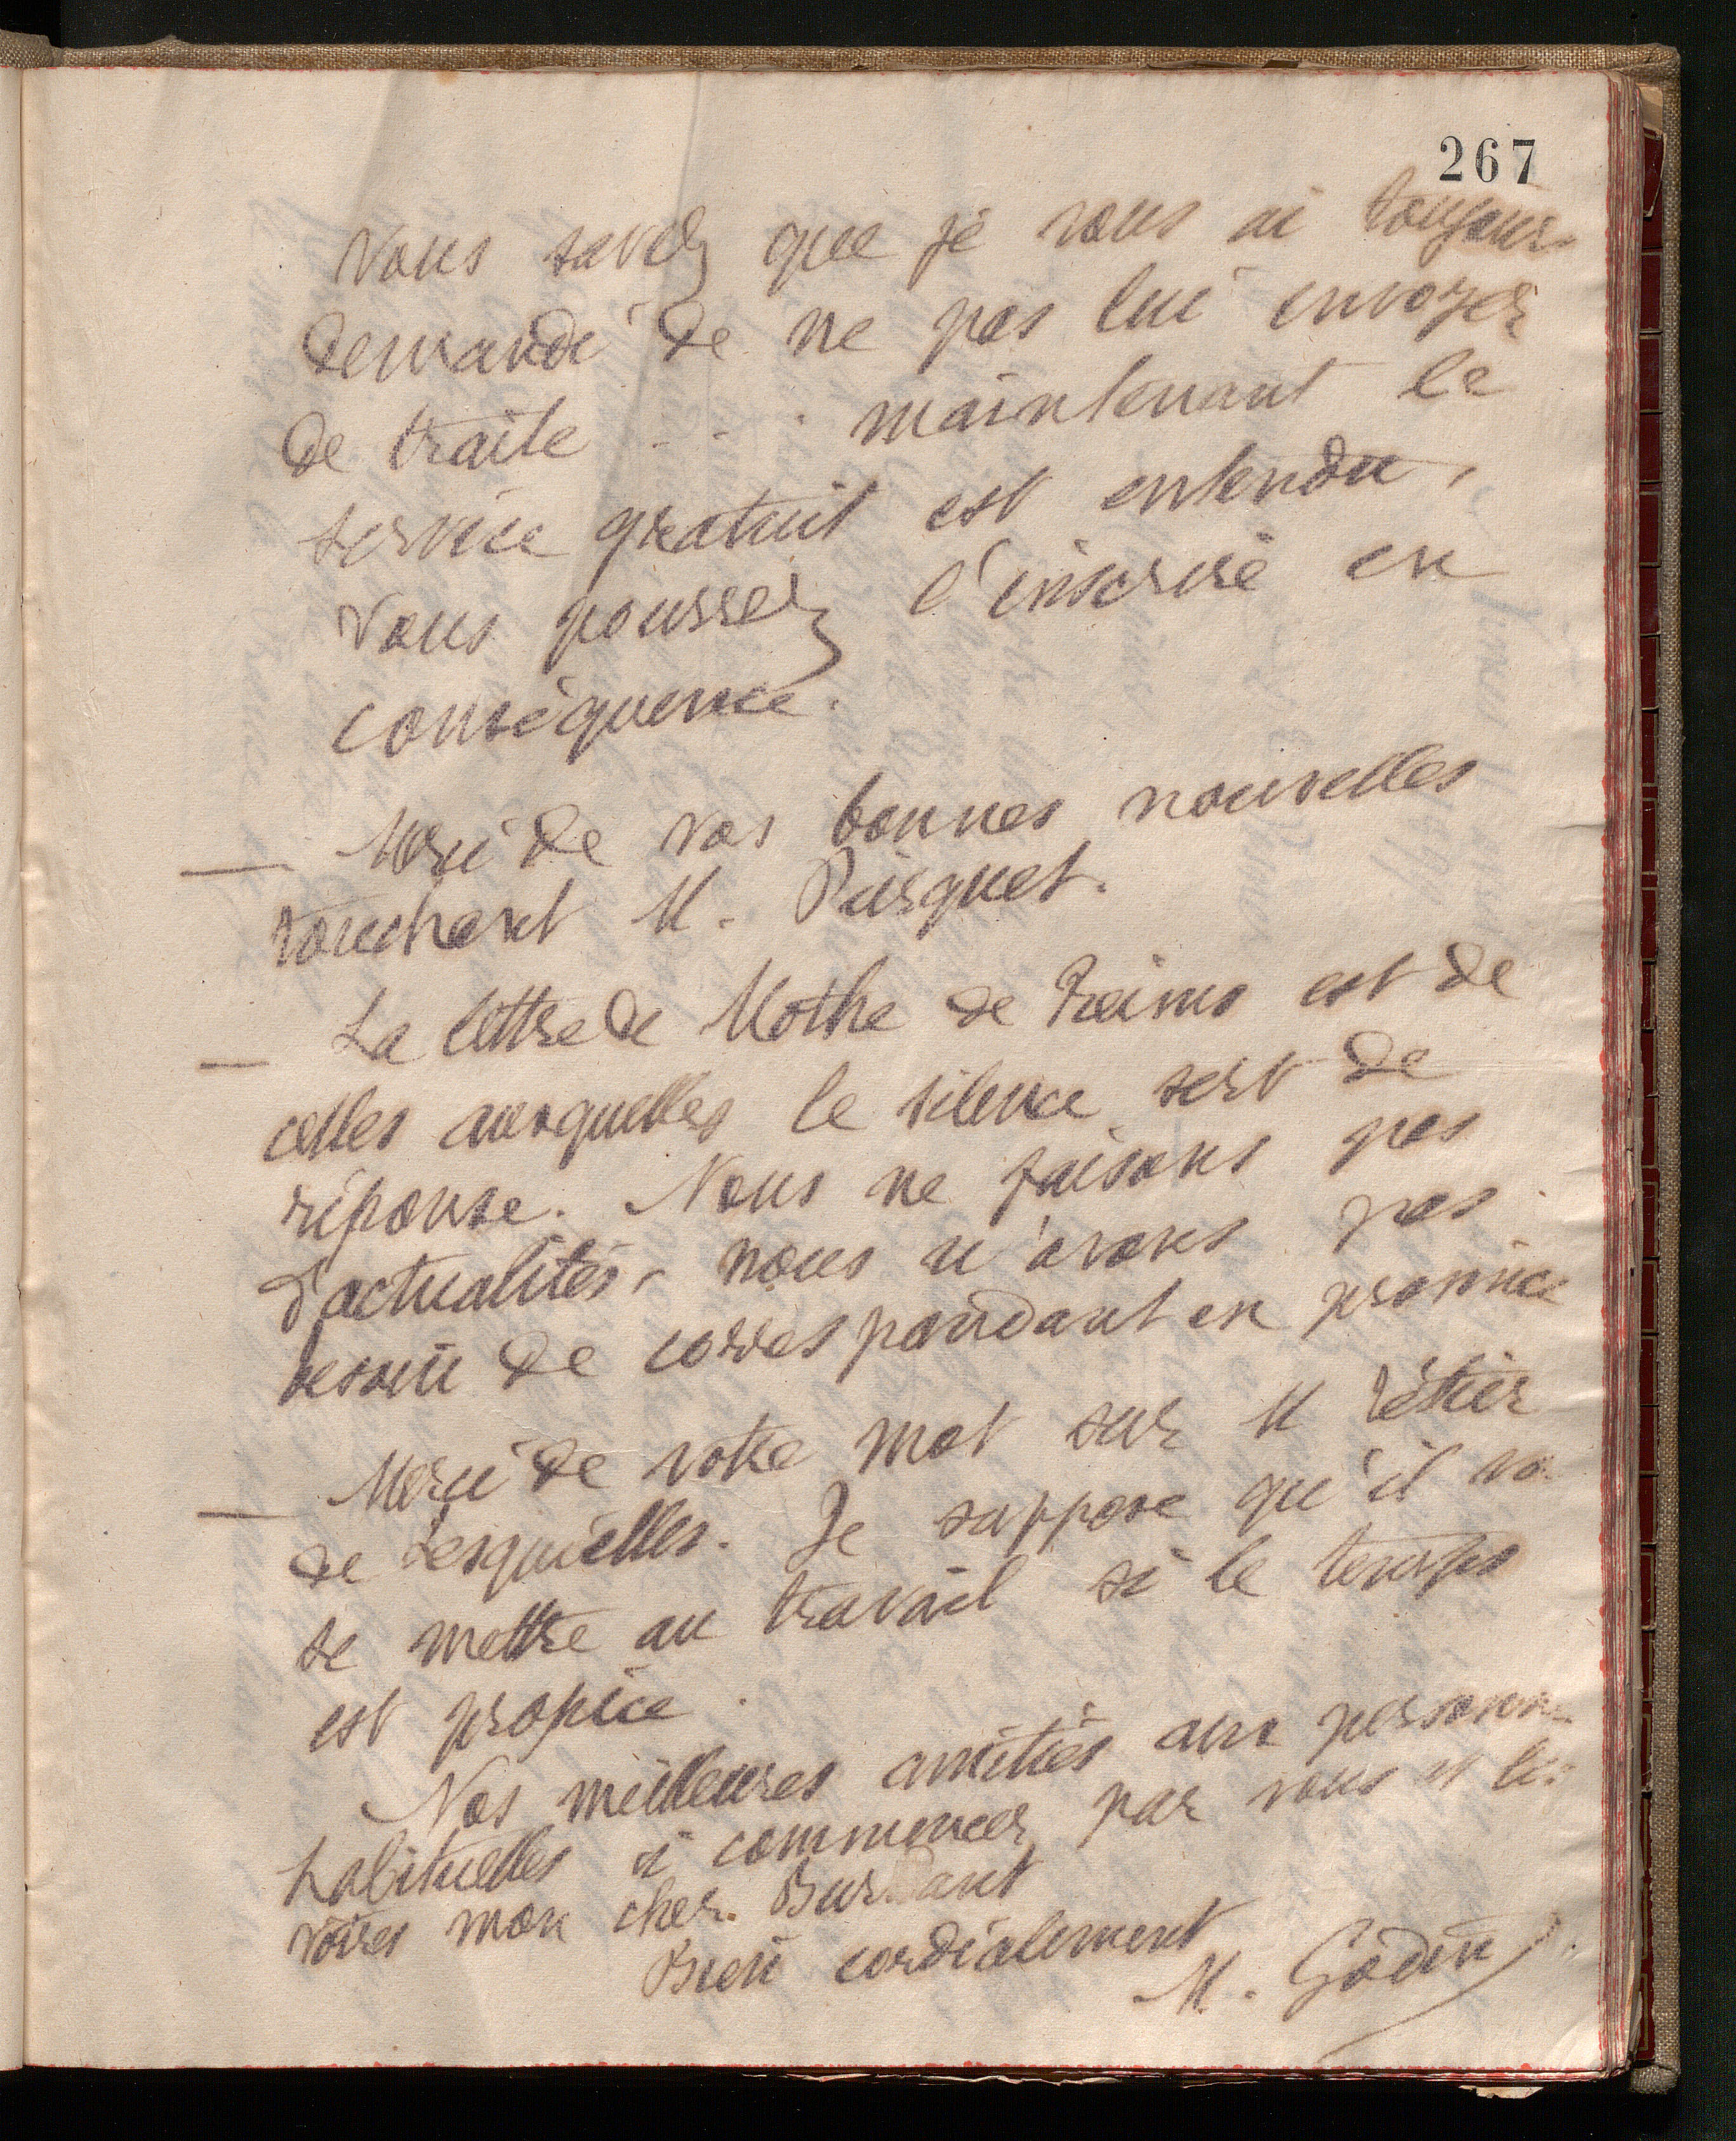 267
Vous savez que je vous ai toujours
demandé de ne pas lui envoyer
de traite . . . . maintenant le
service gratuit est entendu,
vous pourrez l'inscrire en
conséquence.
— Merci de vos bonnes nouvelles
touchant M. Puisquet.
— La lettre de Mothe de Reims est de
celles auxquelles le silence sert de
réponse. Nous ne faisons pas
d'actualités, nous n'avons pas
besoin de correspondant en province
— Merci de votre mot sur M Tétier
de Lesquielles. Je suppose qu'il va
se mettre au travail si le temps
est propice.
Nos meilleures amitiés aux personn.
habituelles à commencer par vous et les
votres mon cher Burdant
Bien cordialement
M. Godin